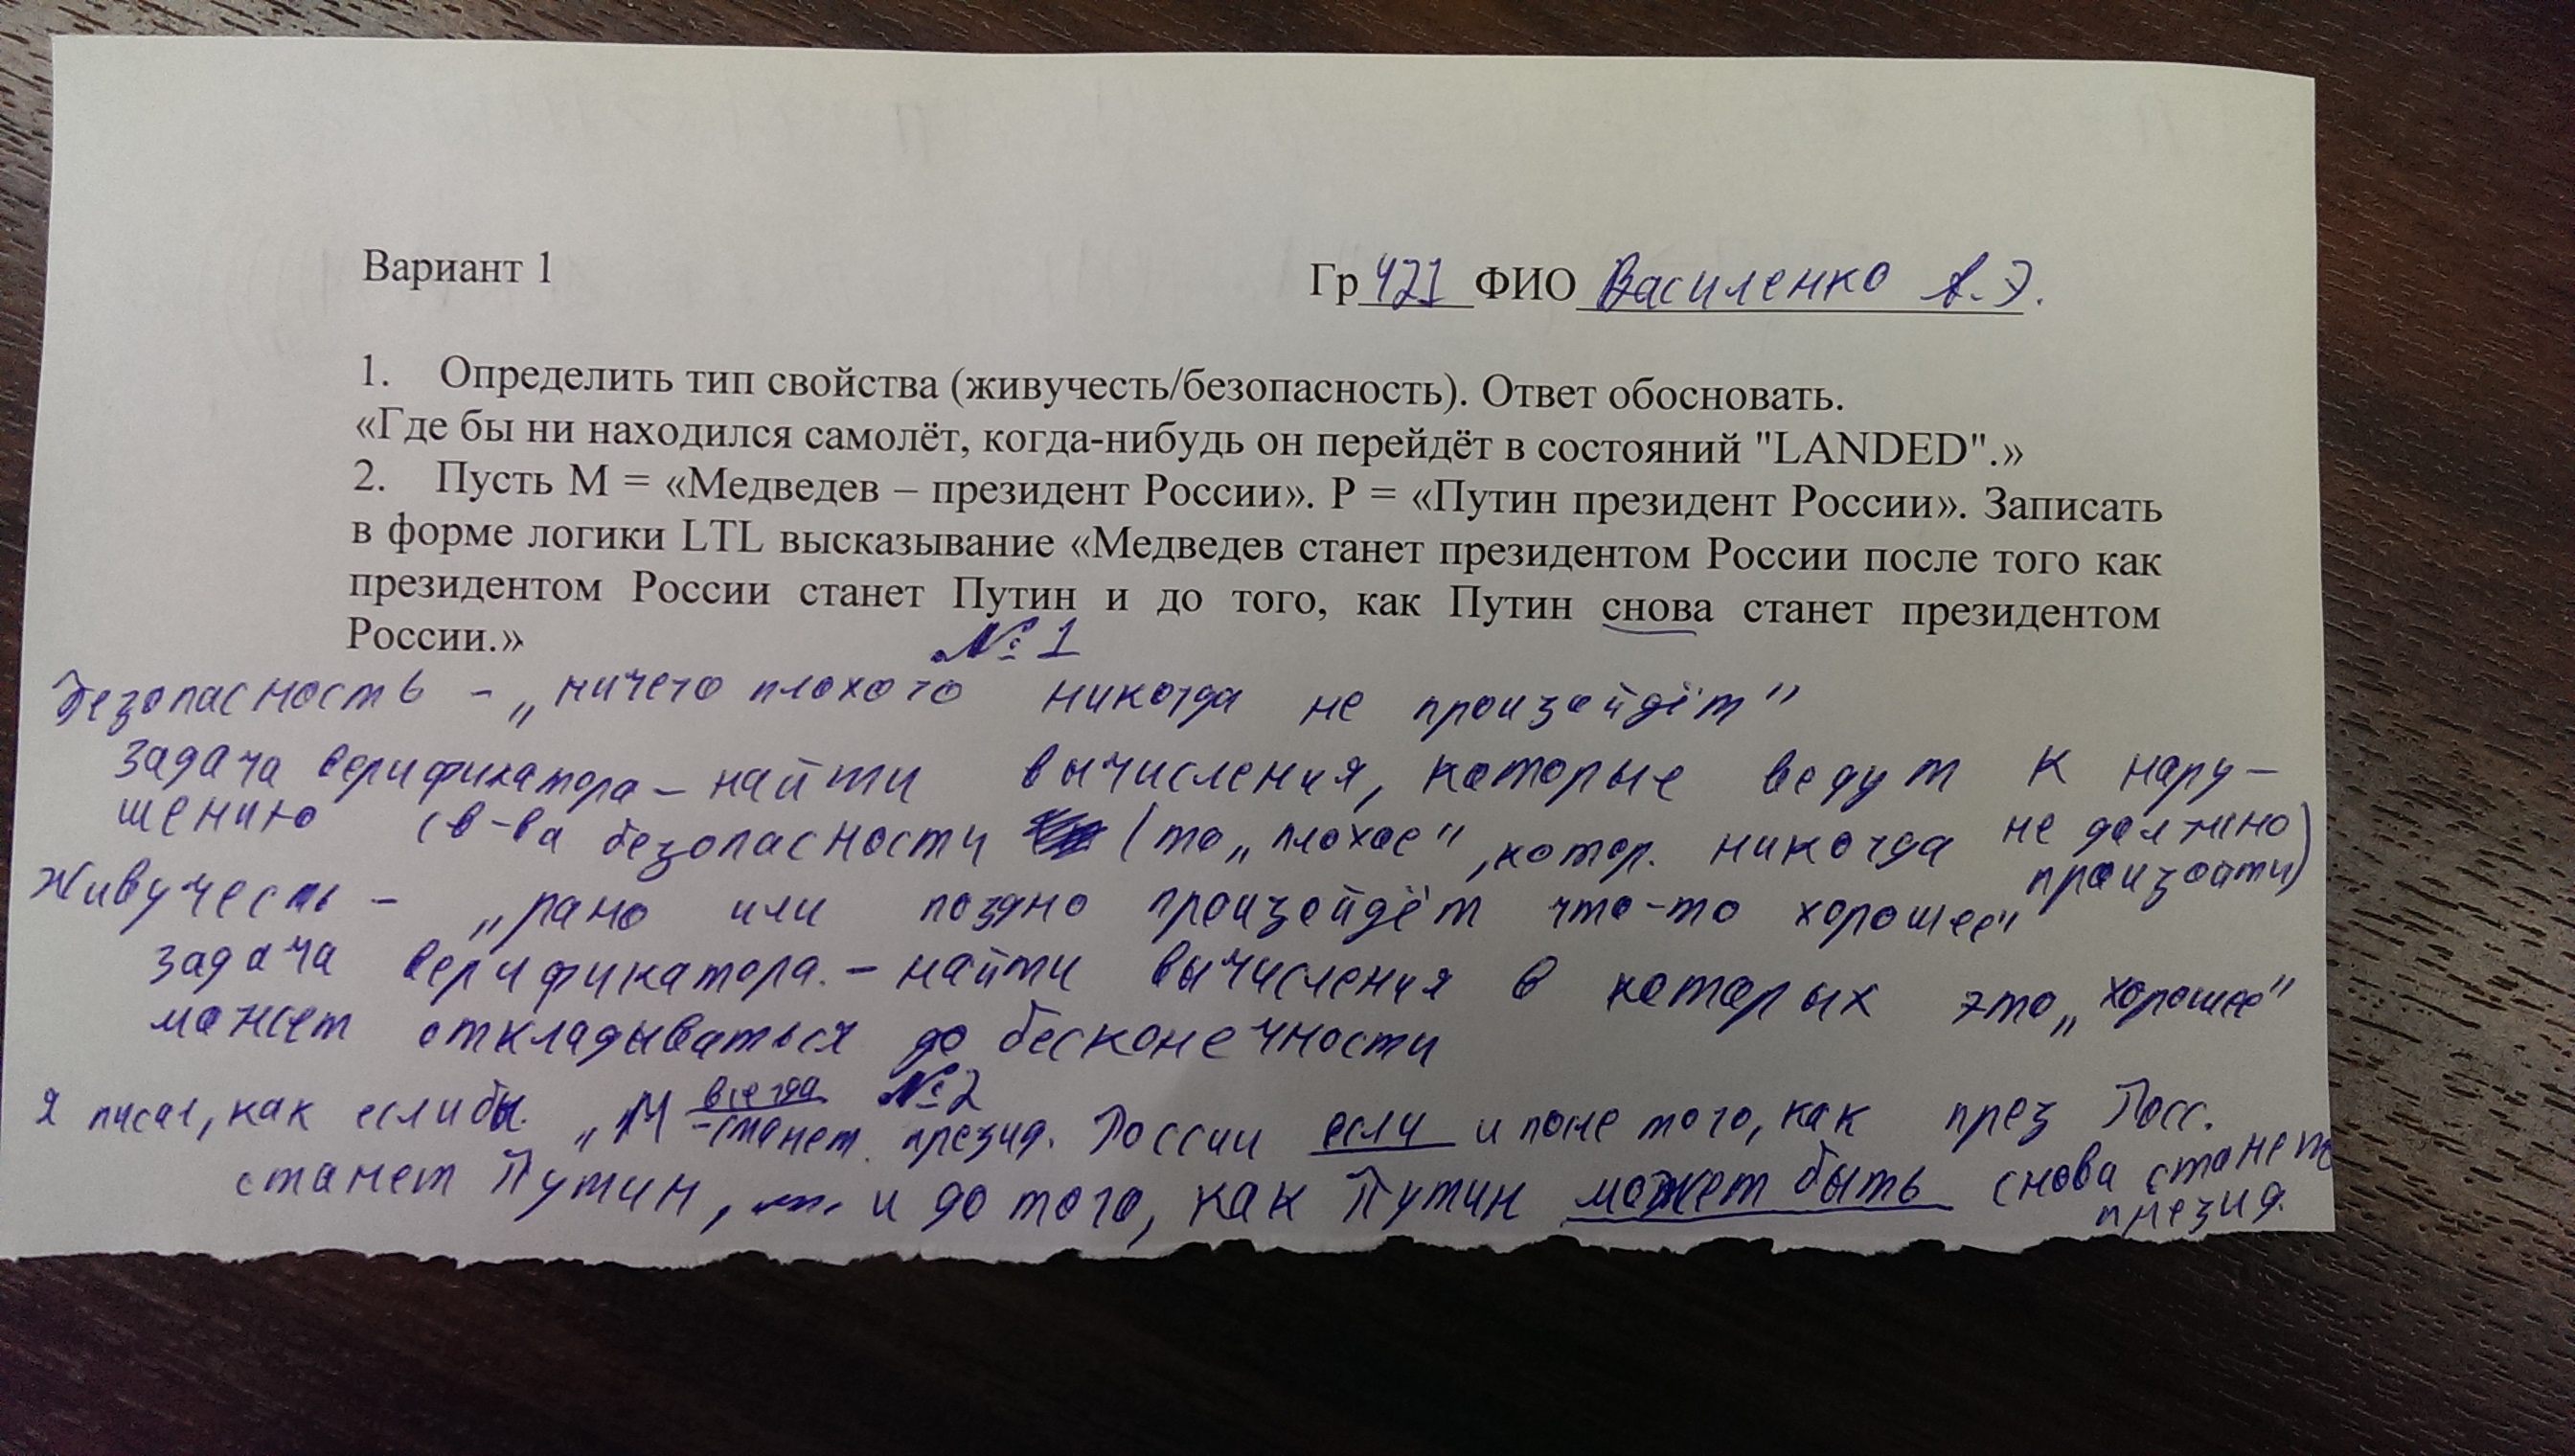 Вариант 1
Гр 421 ФИО Василенко А.Э.
1. Определить тип свойства (живучесть/безопасность). Ответ обосновать.
«Где бы ни находился самолёт, когда-нибудь он перейдёт в состояний "LANDED".»
2. Пусть M = «Медведев – президент России». P = «Путин президент России». Записать
в форме логики LTL высказывание «Медведев станет президентом России после того как
президентом России станет Путин и до того, как Путин снова станет президентом
России.»
№ 1
Безопасность - „ничего плохого никогда не произойдёт"
задача верификатора - найти вычисления, которые ведут к нару-
шению св-ва безопасности (то „плохое", котор. никогда не должно
произойти)
Живучесть - „рано или поздно произойдёт что-то хорошее"
задача верификатора. - найти вычисления в которых это „хорошее"
может откладываться до бесконечности
№2
Я писал, как если бы „М всегда станет презид. России если и после того, как през Росс.
станет Путин, и до того, как Путин может быть снова станет
презид.